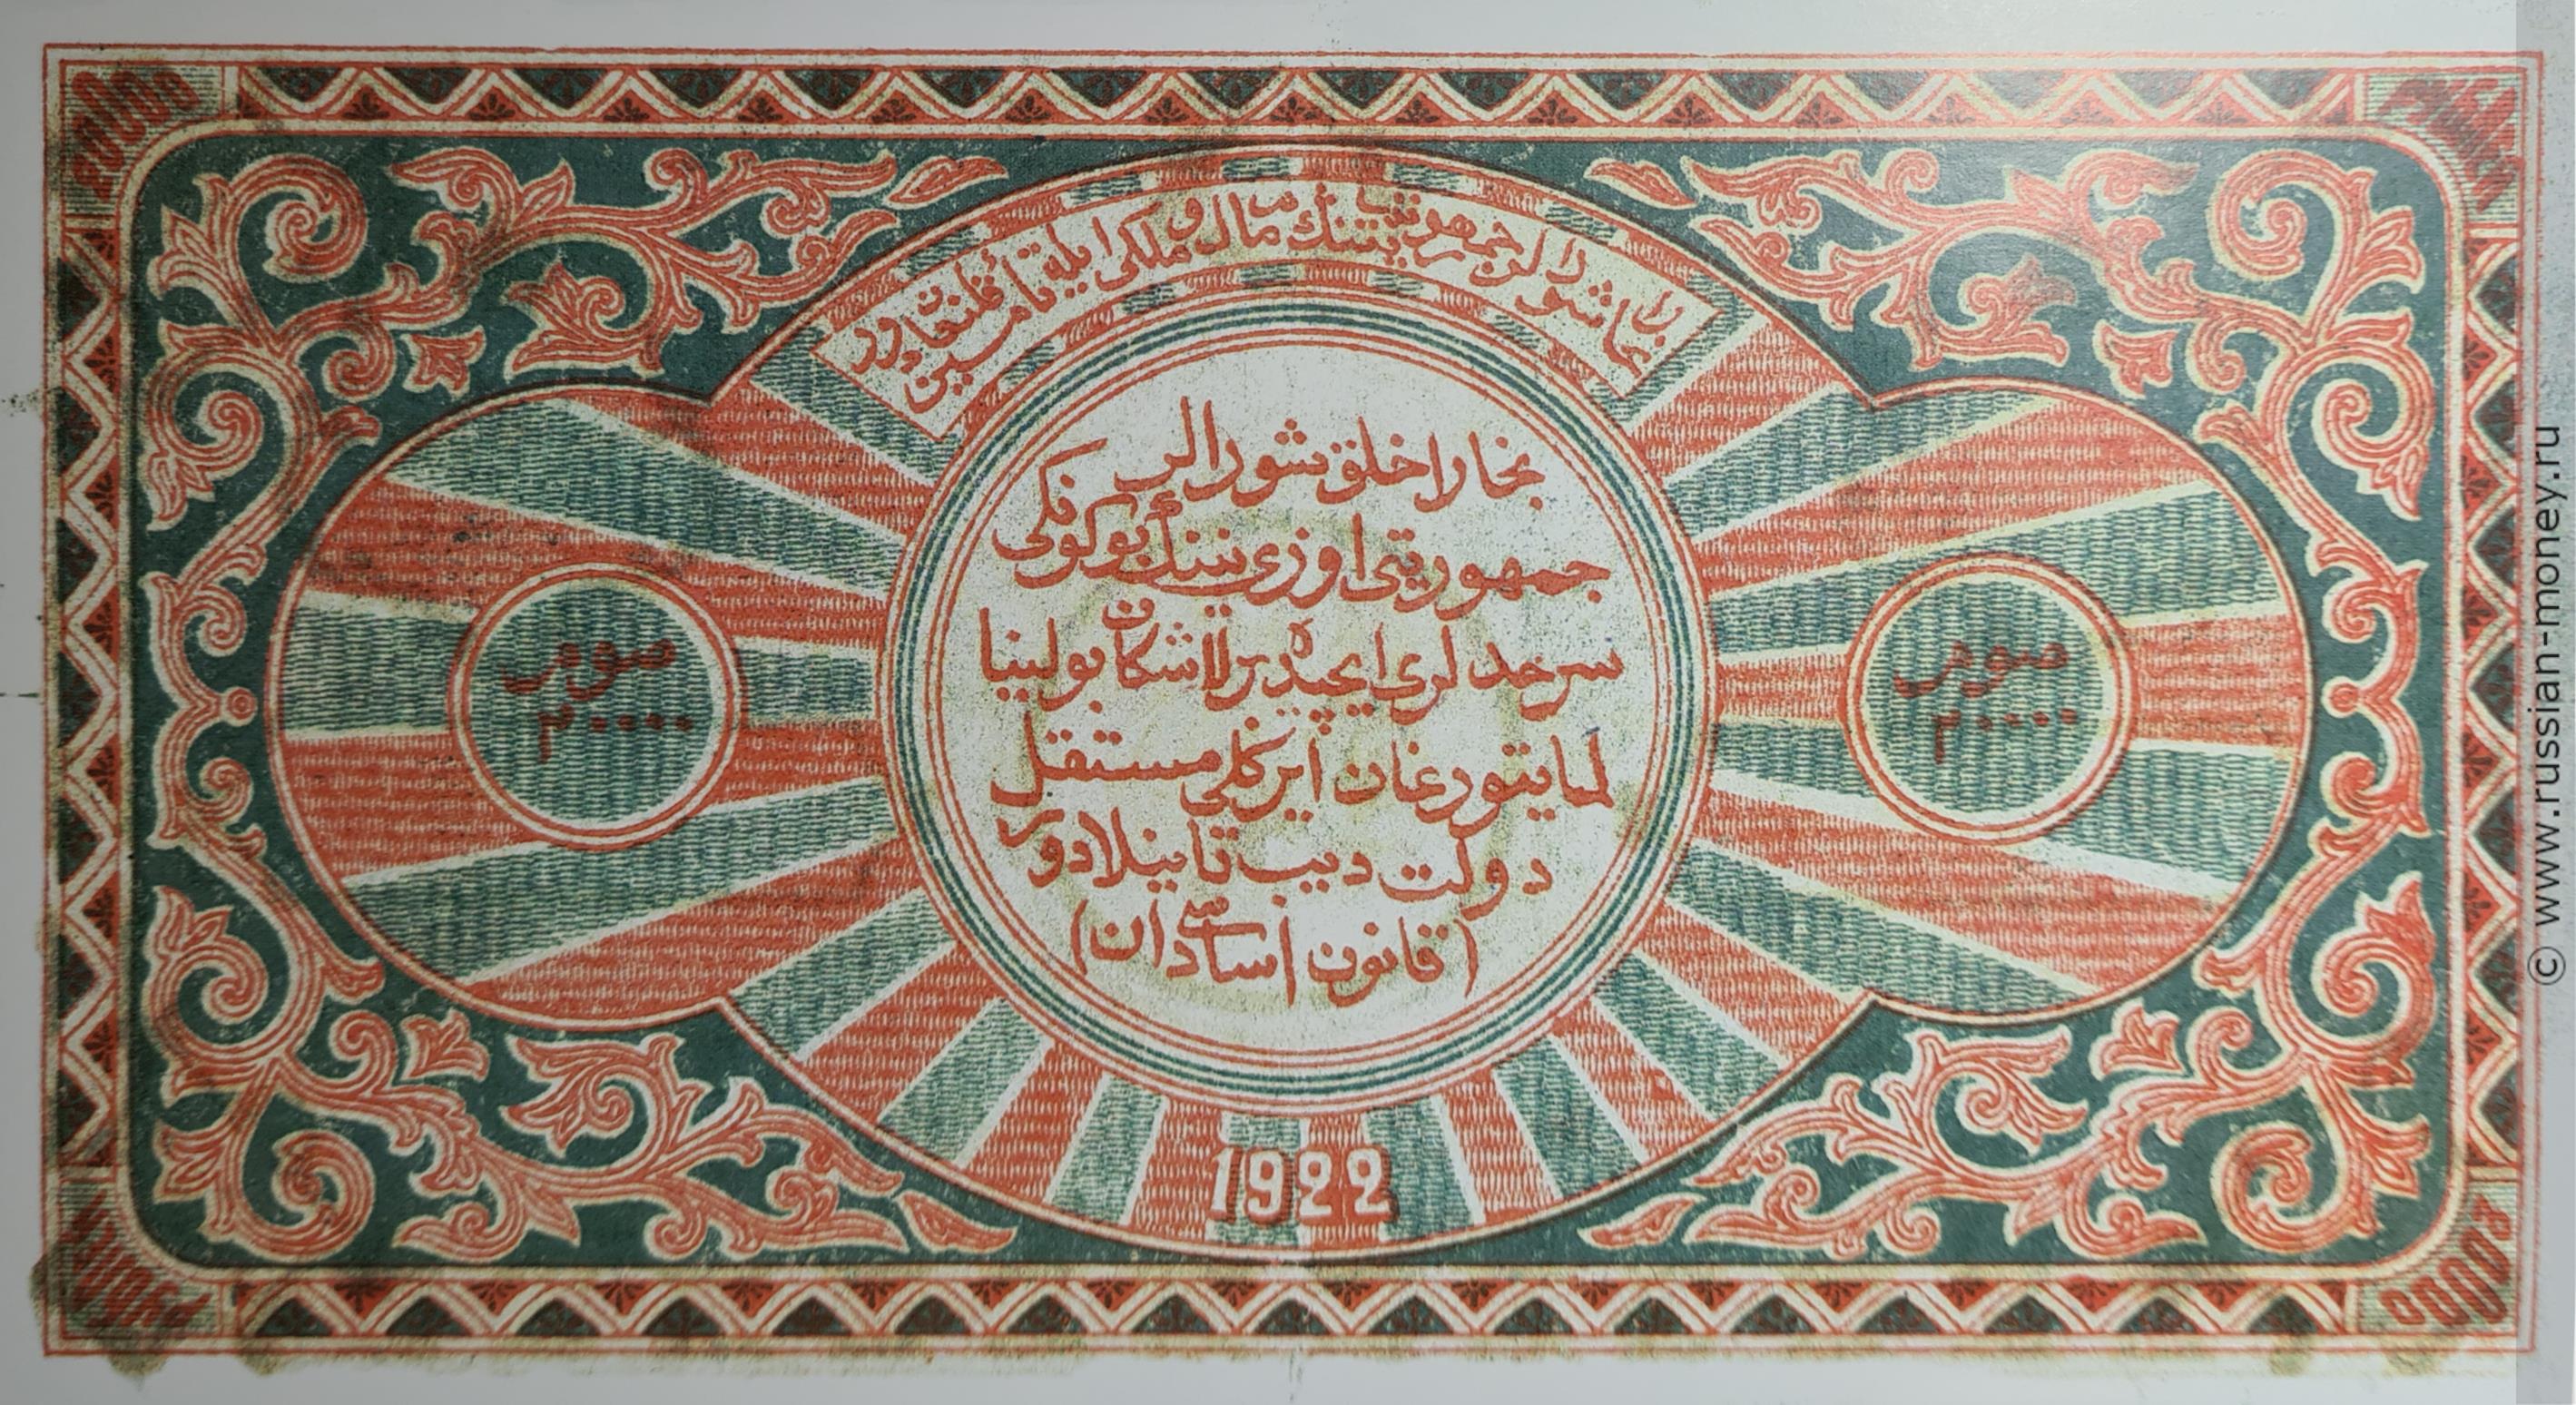 بخارا شورالر جمهوریتیننك مال و ملكی ایله تأمین قلنغاندور
بخارا خلق شورالر
جمهوریتی اوزی نینك بوكونكی
سرحدلری ایچیده یرلاشكان بولینیا
لمایتورغان ایركلی مستقل
دولت دیب تانیلادور
(قانون اساسیدان)
صوم
۲۰۰۰۰
صوم
۲۰۰۰۰
1922
© www.russian-money.ru